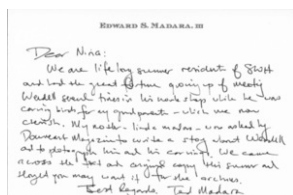 EDWARD S. MADARA, III
Dear Nina:
We are life long summer residents of SWH
and had the great fortune growing up of meeting
Wendell several times in his work shop while he was
carving birds for my grandparents - which we now
cherish. My mother - Linda Madara - was asked by
Downeast Magazine to write a story about Wendell
and to photograph him and his carving. We came
across the and original copy this summer and
thought you may want it for the archives.
Best Regards, Ted Madara